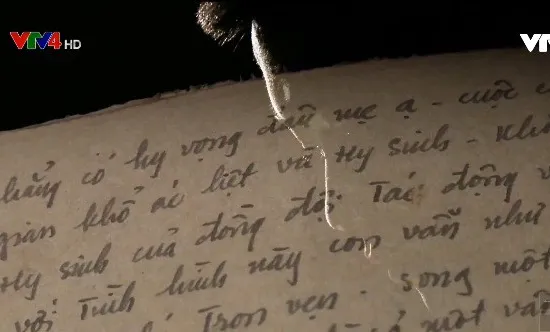 VTV4 HD
VTV
chẳng có hy vọng đâu mẹ ạ - cuộc
gian khổ ác liệt và Hy sinh -
Hy sinh của đồng đội Tác động
với Tình hình này con vẫn như
Trọn vẹn. song một
một vấn